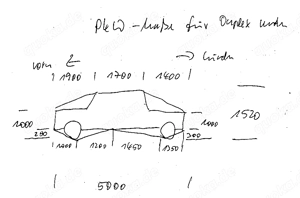 PKW-Maße für Duplex unten
vorn ← → hinten
1900 1700 1400
1000 1000 1520
250 300
1200 1450 1350
5000